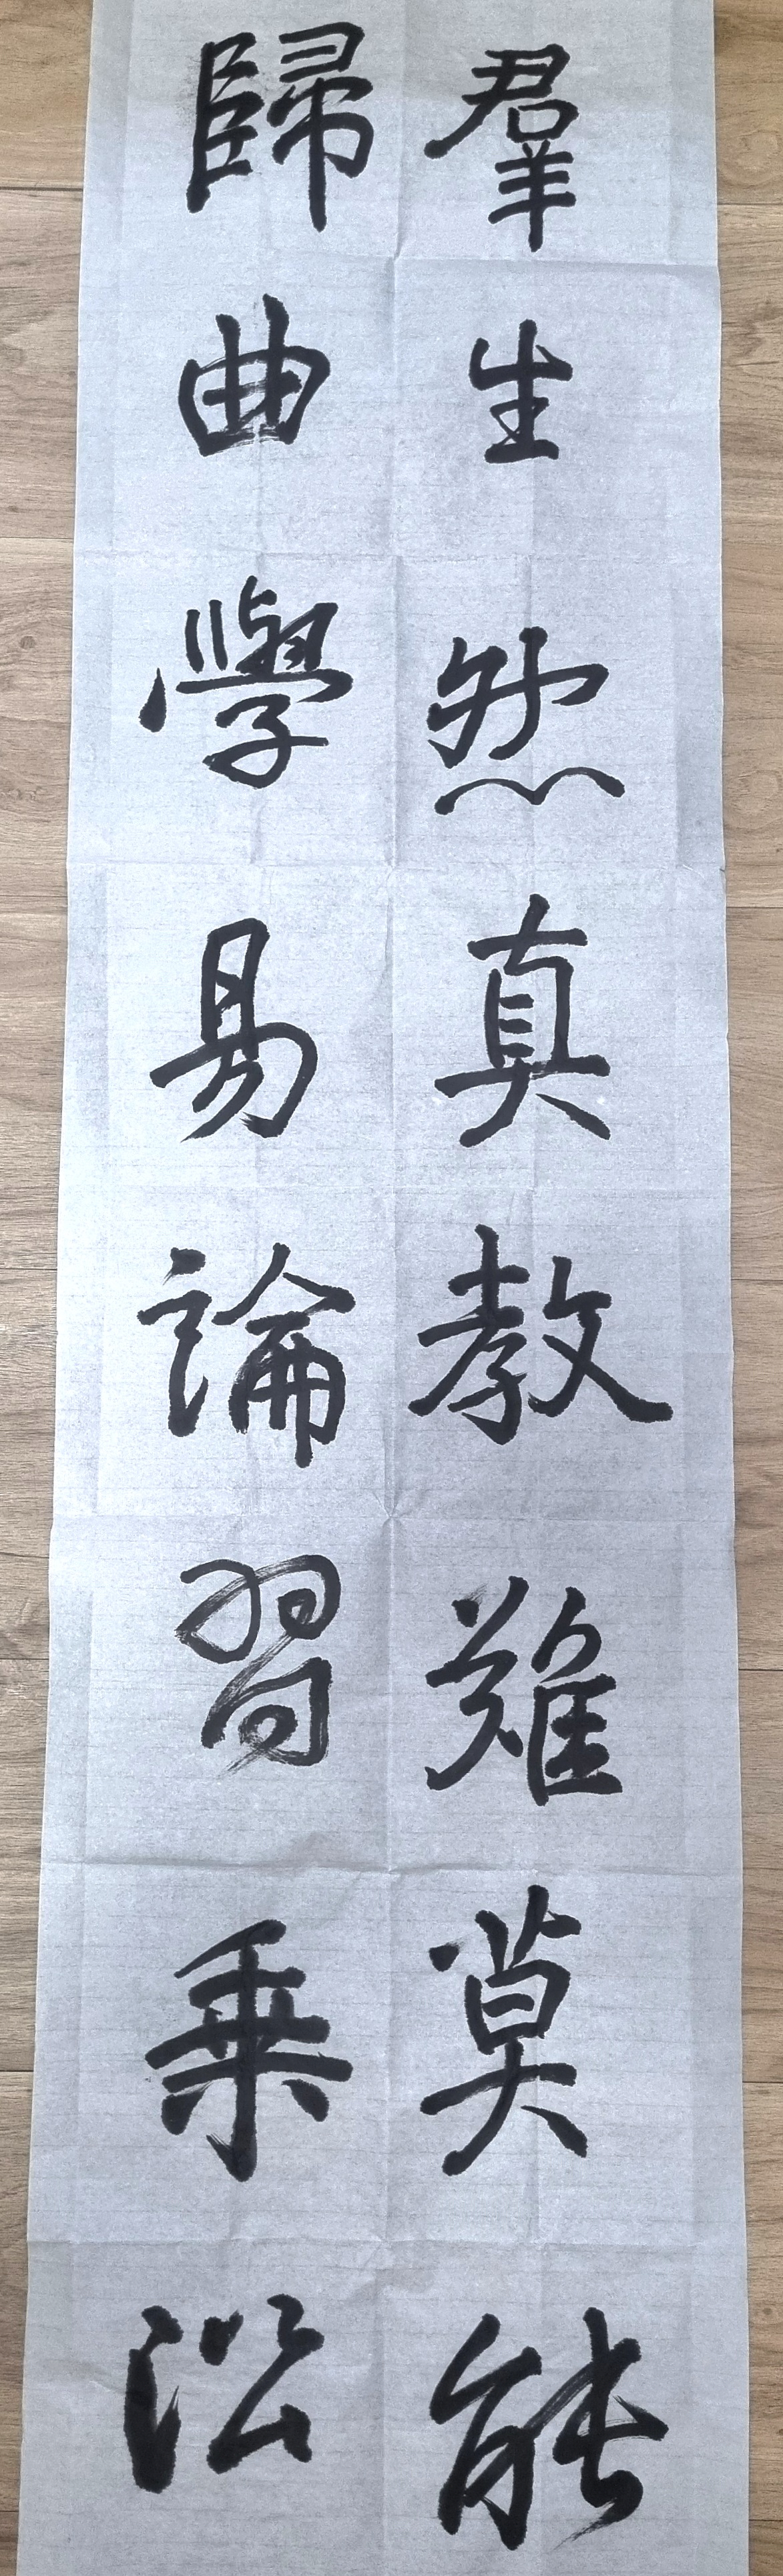 羣生然真教難莫能
歸曲學易論習乘沿